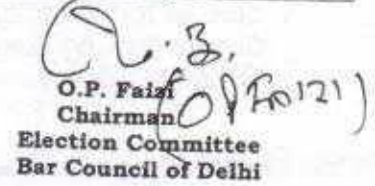 O.P. Faizi
Chairman
Election Committee
Bar Council of Delhi